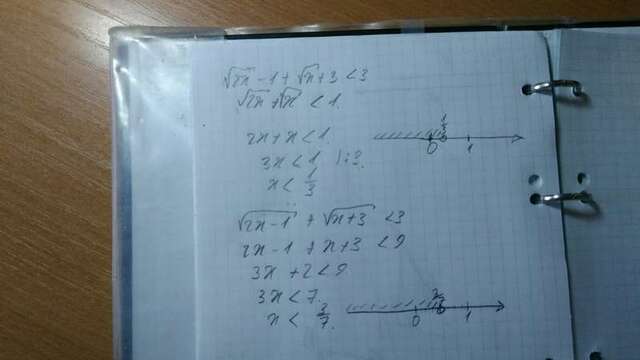 √2x - 1 + √x + 3 < 3
√2x + √x < 1.
2x + x < 1.
3x < 1 | :3.
x < 1/3
1/3
0 1
√2x - 1 + √x + 3 < 3
2x - 1 + x + 3 < 9
3x + 2 < 9.
3x < 7.
x < 3/7.
0 1